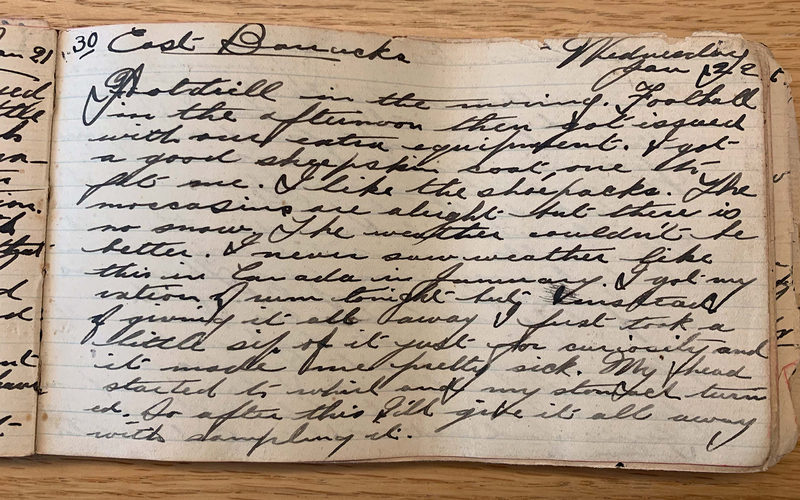 30 East Barracks Wednesday
Jan 22
Footdrill in the morning. Football
in the afternoon then got issued
with our extra equipment. I got
a good sheepskin coat, one to
fit me. I like the shoepacks. The
moccasins are alright but there is
no snow. The weather couldn't be
better. I never saw weather like
this in Canada in January. I got my
ration of rum tonight but instead
of giving it all away I just took a
little sip of it just for curiosity and
it made me pretty sick. My head
started to whirl and my stomach turn
ed. So after this I'll give it all away
with sampling it.